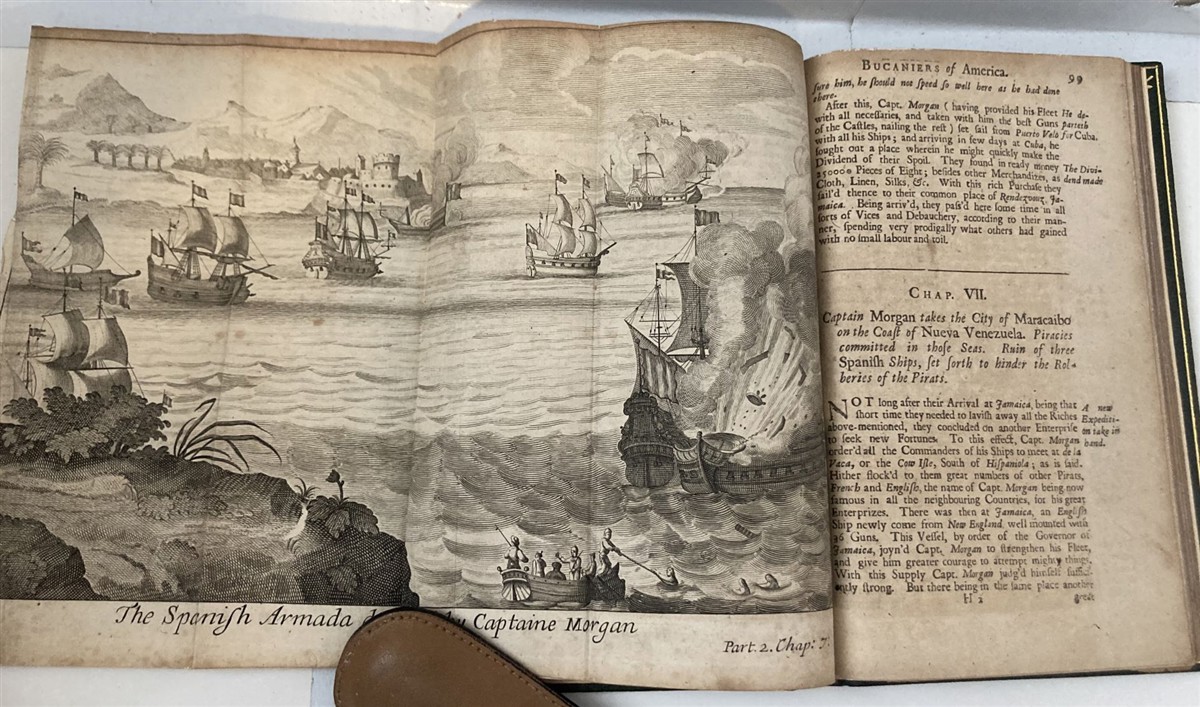 The Spaniſh Armada d by Captaine Morgan
Part. 2. Chap:
BUCANIERS of America.
99
ſure him, he ſhould not ſpeed ſo well here as he had done
there.
After this, Capt. Morgan (having provided his Fleet
with all neceſſaries, and taken with him the beſt Guns
of the Caſtles, nailing the reſt) ſet ſail from Puerto Velo
with all his Ships; and arriving in few days at Cuba, he
ſought out a place wherein he might quickly make the
Dividend of their Spoil. They found in ready money
250000 Pieces of Eight; beſides other Merchandizes, as
Cloth, Linen, Silks, &c. With this rich Purchaſe they
ſail'd thence to their common place of Rendezvouz, Ja-
maica. Being arriv'd, they paſs'd here ſome time in all
ſorts of Vices and Debauchery, according to their man-
ner, ſpending very prodigally what others had gained
with no ſmall labour and toil.
He de-
parteth
for Cuba.
The Divi-
dend made
CHAP. VII.
Captain Morgan takes the City of Maracaibo
on the Coaſt of Nueva Venezuela. Piracies
committed in thoſe Seas. Ruin of three
Spaniſh Ships, ſet forth to hinder the Rob-
beries of the Pirats.
NOT long after their Arrival at Jamaica, being that
ſhort time they needed to laviſh away all the Riches
above-mentioned, they concluded on another Enterpriſe
to ſeek new Fortunes. To this effect, Capt. Morgan
order'd all the Commanders of his Ships to meet at de la
Vaca, or the Cow Iſle, South of Hiſpaniola; as is ſaid.
Hither flock'd to them great numbers of other Pirats,
French and Engliſh, the name of Capt. Morgan being now
famous in all the neighbouring Countries, for his great
Enterprizes. There was then at Jamaica, an Engliſh
Ship newly come from New England, well mounted with
36 Guns. This Veſſel, by order of the Governor of
Jamaica, joyn'd Capt. Morgan to ſtrengthen his Fleet,
and give him greater courage to attempt mighty things.
With this Supply Capt. Morgan judg'd himſelf ſuffici-
ently ſtrong. But there being in the ſame place another
A new
Expediti-
on take in
hand.
H 2
great